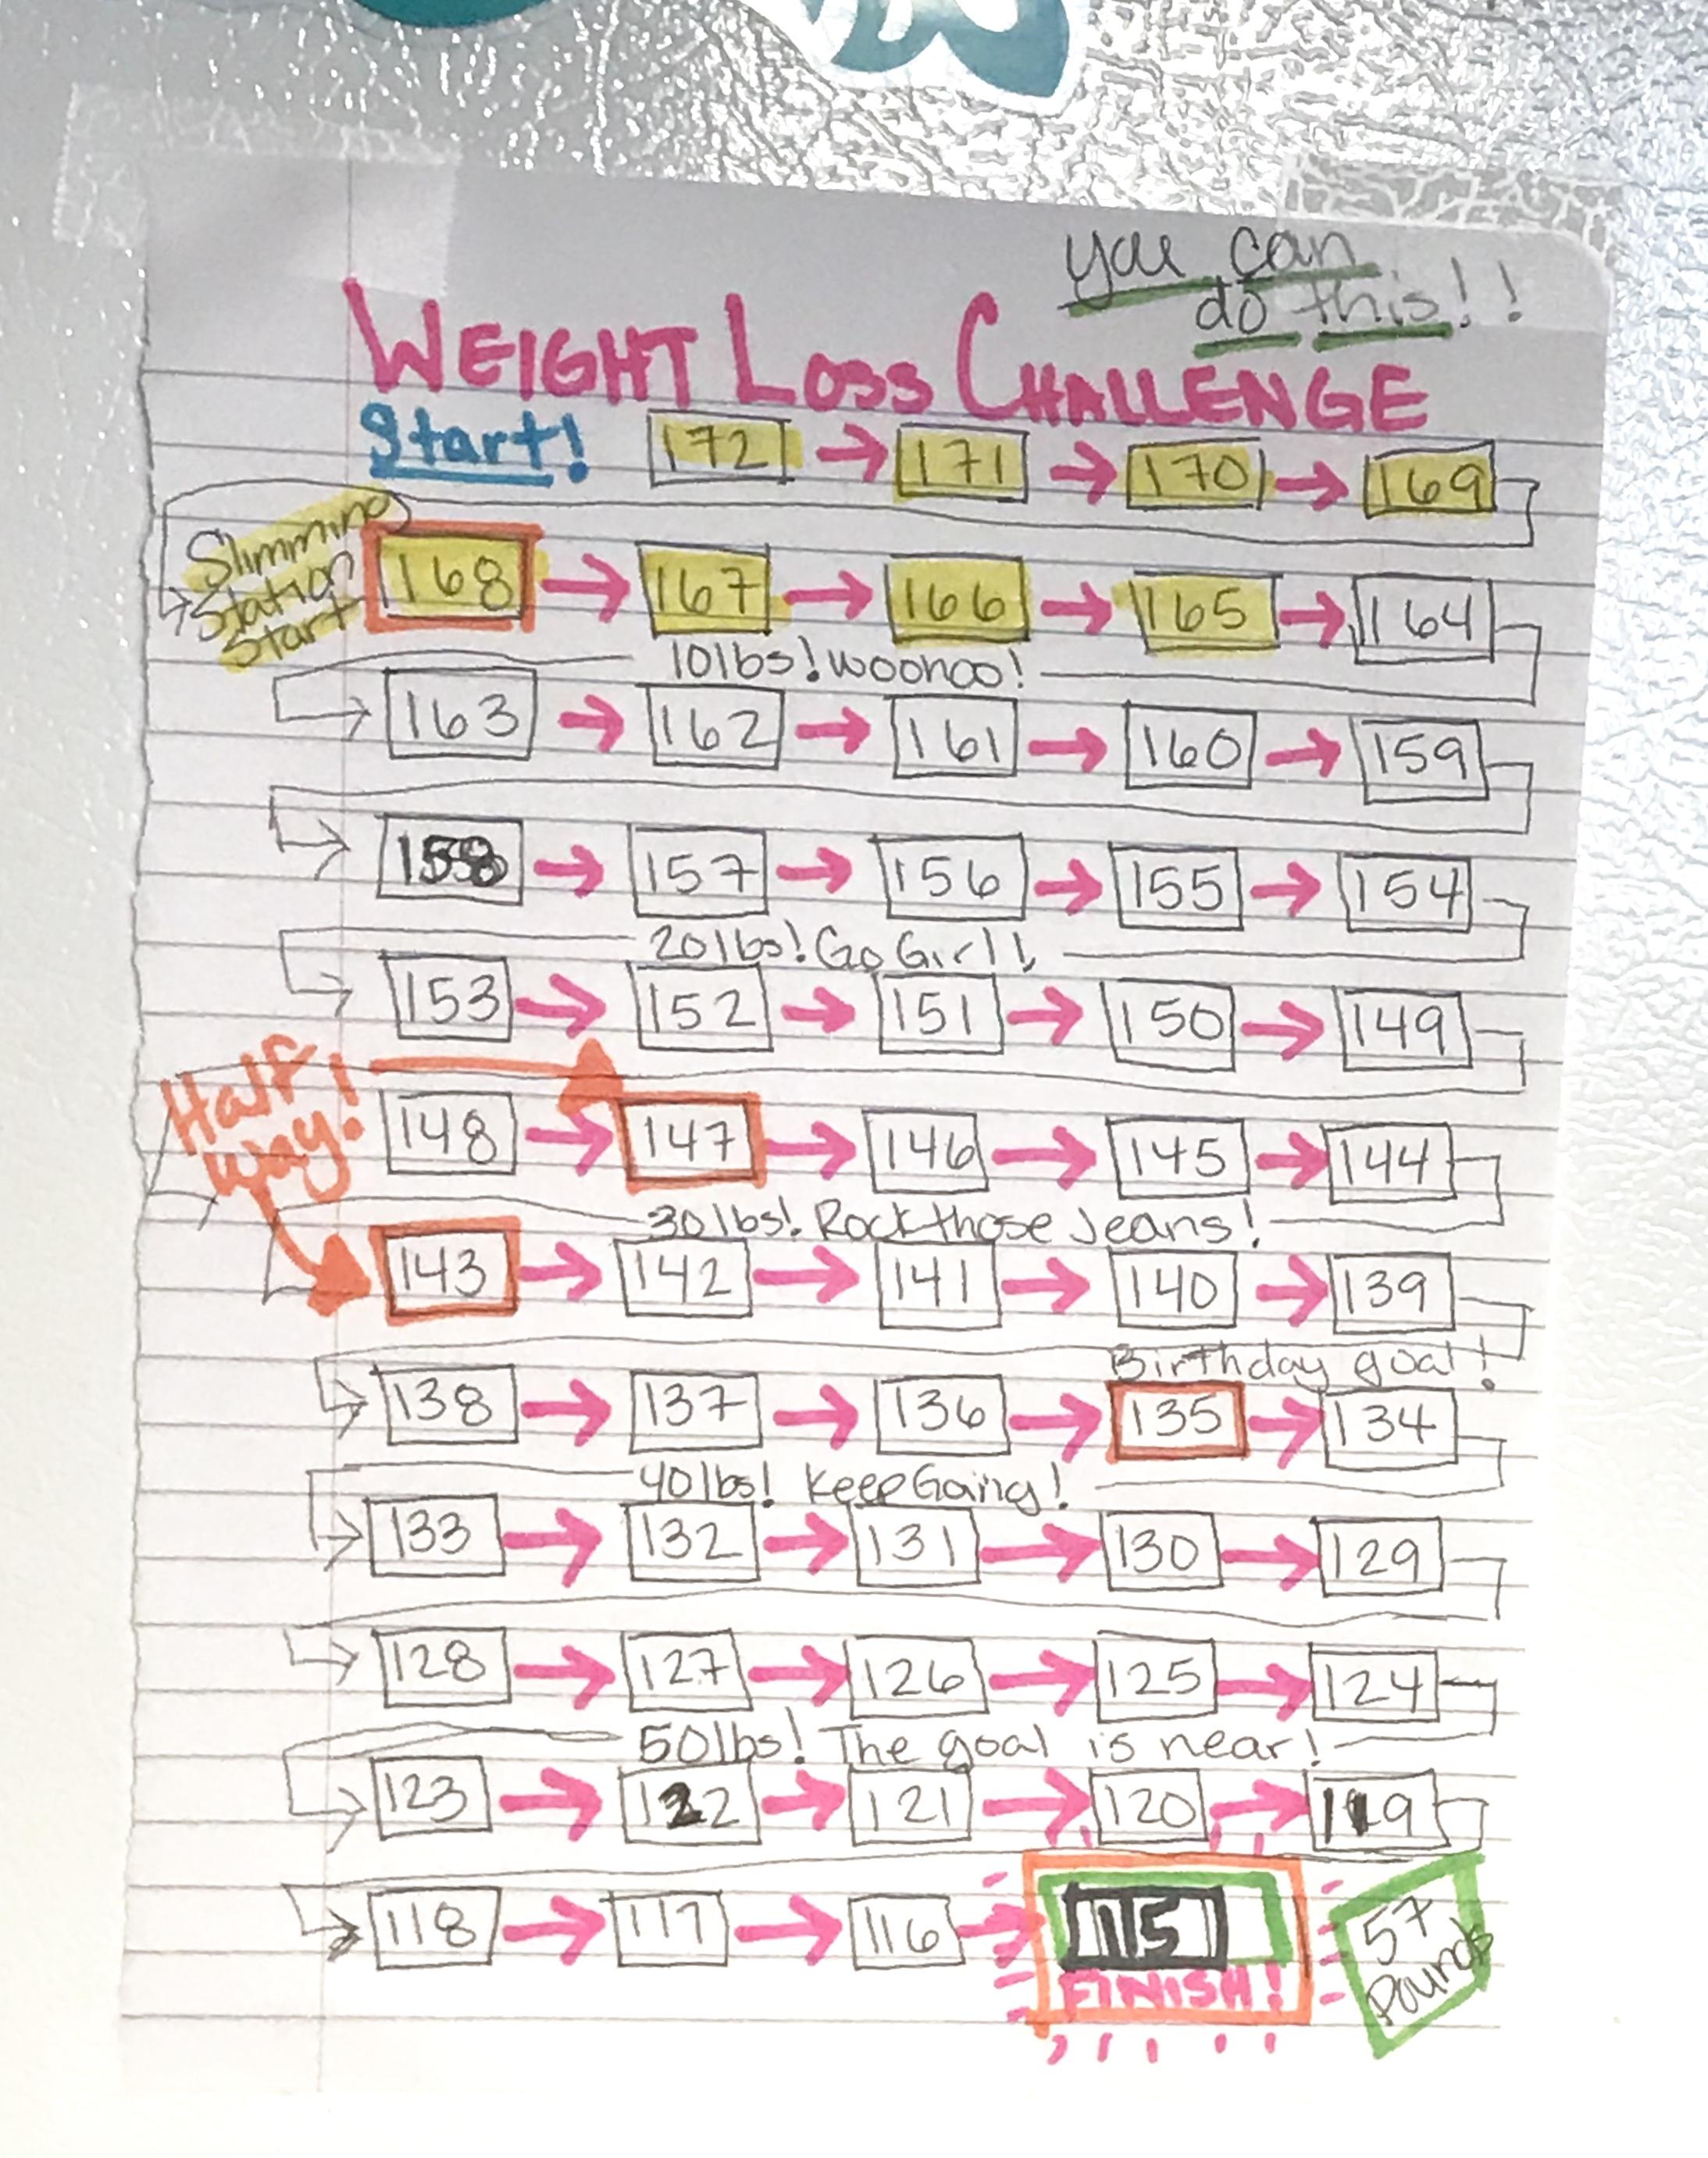 you can
do this!!
WEIGHT LOSS CHALLENGE
Start! 172 171 170 169
Slimming
Station
Start
168 167 166 165 164
10lbs! woohoo!
163 162 161 160 159
158 157 156 155 154
20lbs! Go Girl!
153 152 151 150 149
Half
way!
148 147 146 145 144
30lbs! Rock those Jeans!
143 142 141 140 139
Birthday goal!
138 137 136 135 134
40lbs! Keep Going!
133 132 131 130 129
128 127 126 125 124
50lbs! The goal is near!
123 122 121 120 119
118 117 116 115
FINISH!
57
Pounds